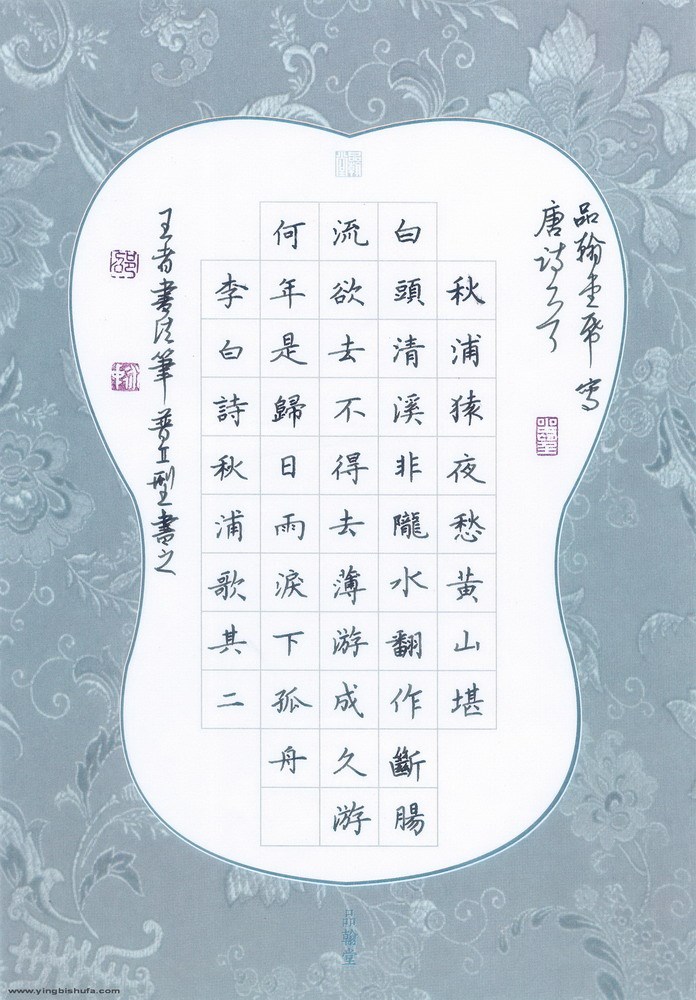 品翰堂
唐诗
秋浦猿夜愁黄山堪
白頭清溪非隴水翻作斷腸
流欲去不得去薄游成久游
何年是歸日雨淚下孤舟
李白詩秋浦歌其二
王者書法筆普II型書之
品翰堂
www.yingbishufa.com